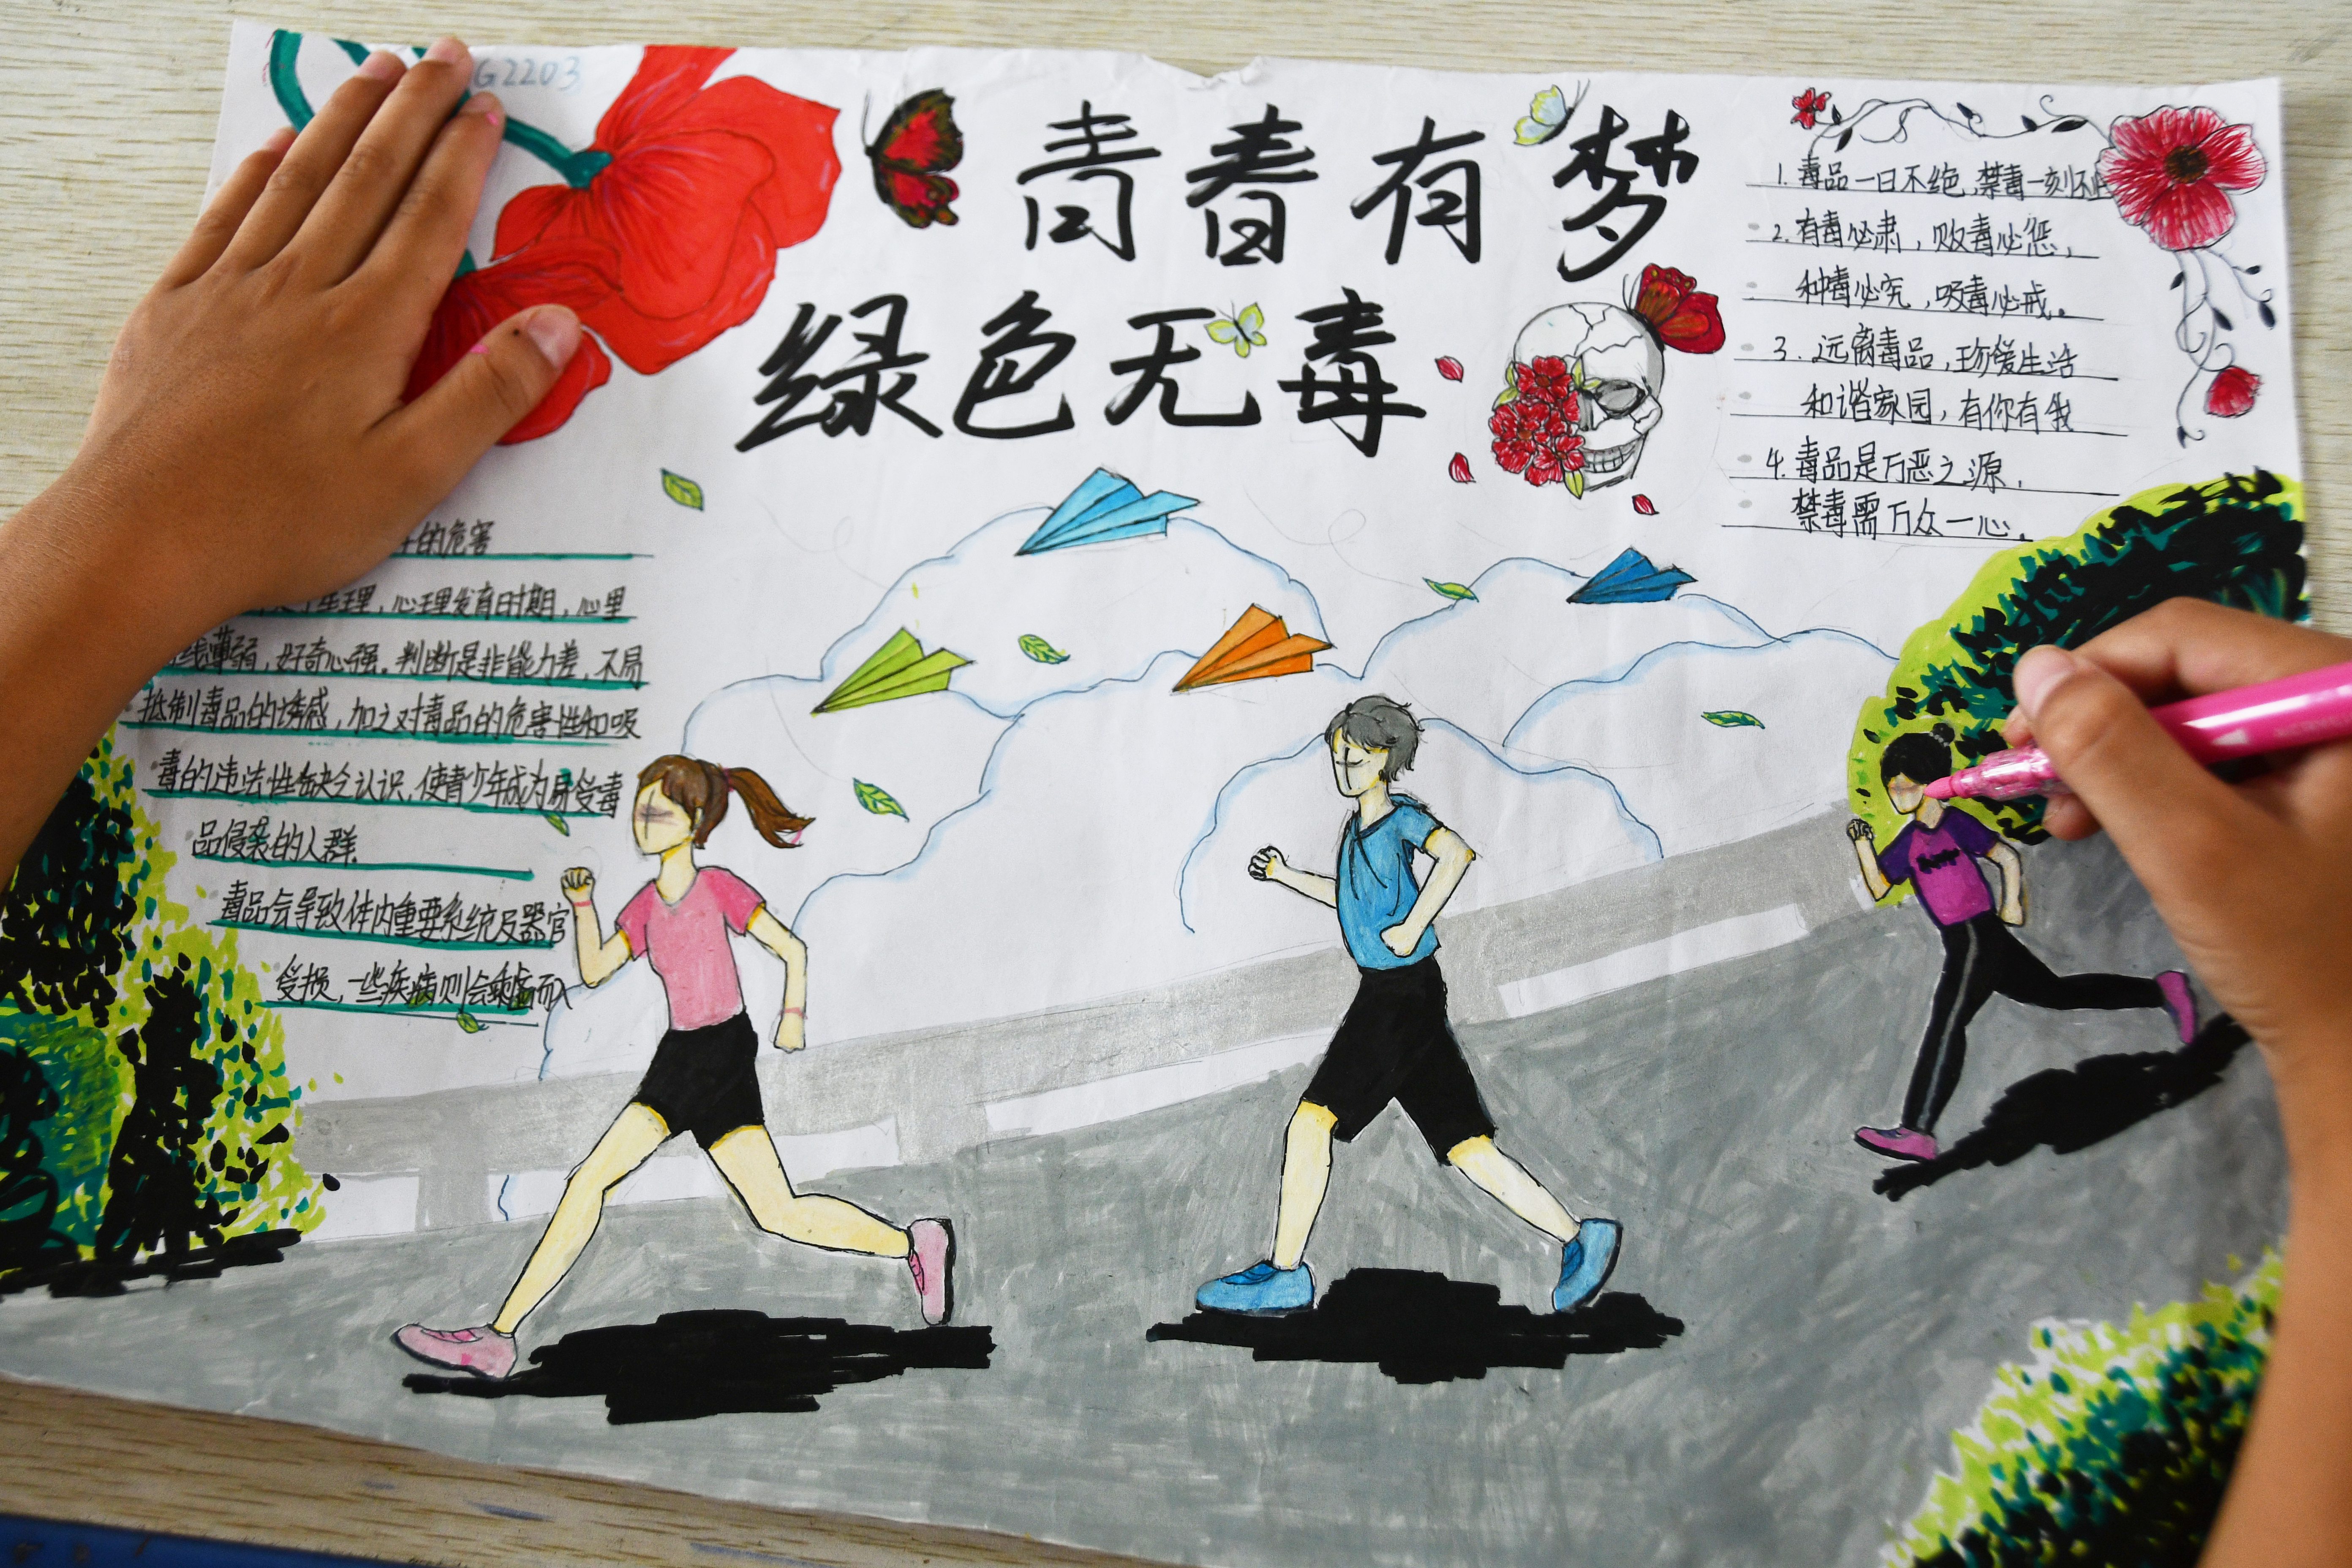 G2203
青春有梦
绿色无毒
1. 毒品一日不绝,禁毒一刻不
2. 有毒必肃,贩毒必惩,
种毒必究,吸毒必戒。
3. 远离毒品,珍爱生活
和谐家园,有你有我
4. 毒品是万恶之源,
禁毒需万众一心。
的危害
生理,心理发育时期,心里
线薄弱,好奇心强,判断是非能力差,不易
抵制毒品的诱惑,加之对毒品的危害性和吸
毒的违法性缺乏认识,使青少年成为易受毒
品侵袭的人群.
毒品会导致体内重要系统及器官
受损,一些疾病则会乘虚而入